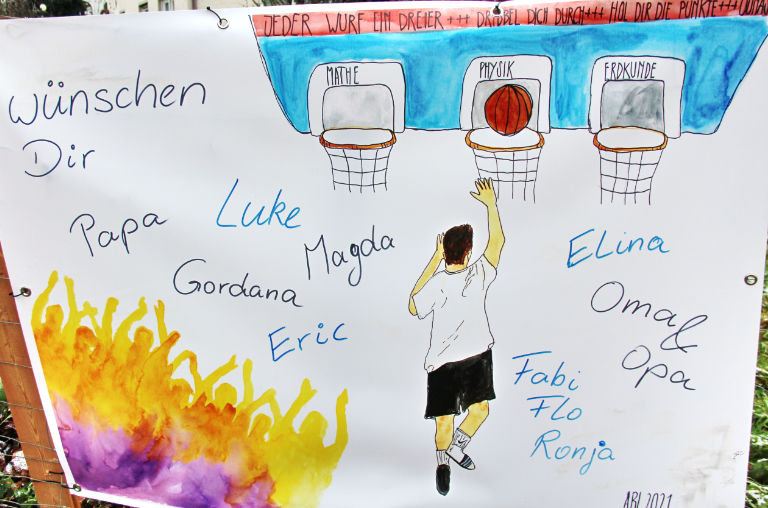 JEDER WURF EIN DREIER +++ DRIBBEL DICH DURCH +++ HOL DIR DIE PUNKTE +++
MATHE
PHYSIK
ERDKUNDE
wünschen
Dir
Papa
Luke
Magda
Gordana
Eric
Elina
Oma &
Opa
Fabi
Flo
Ronja
ABI 2021